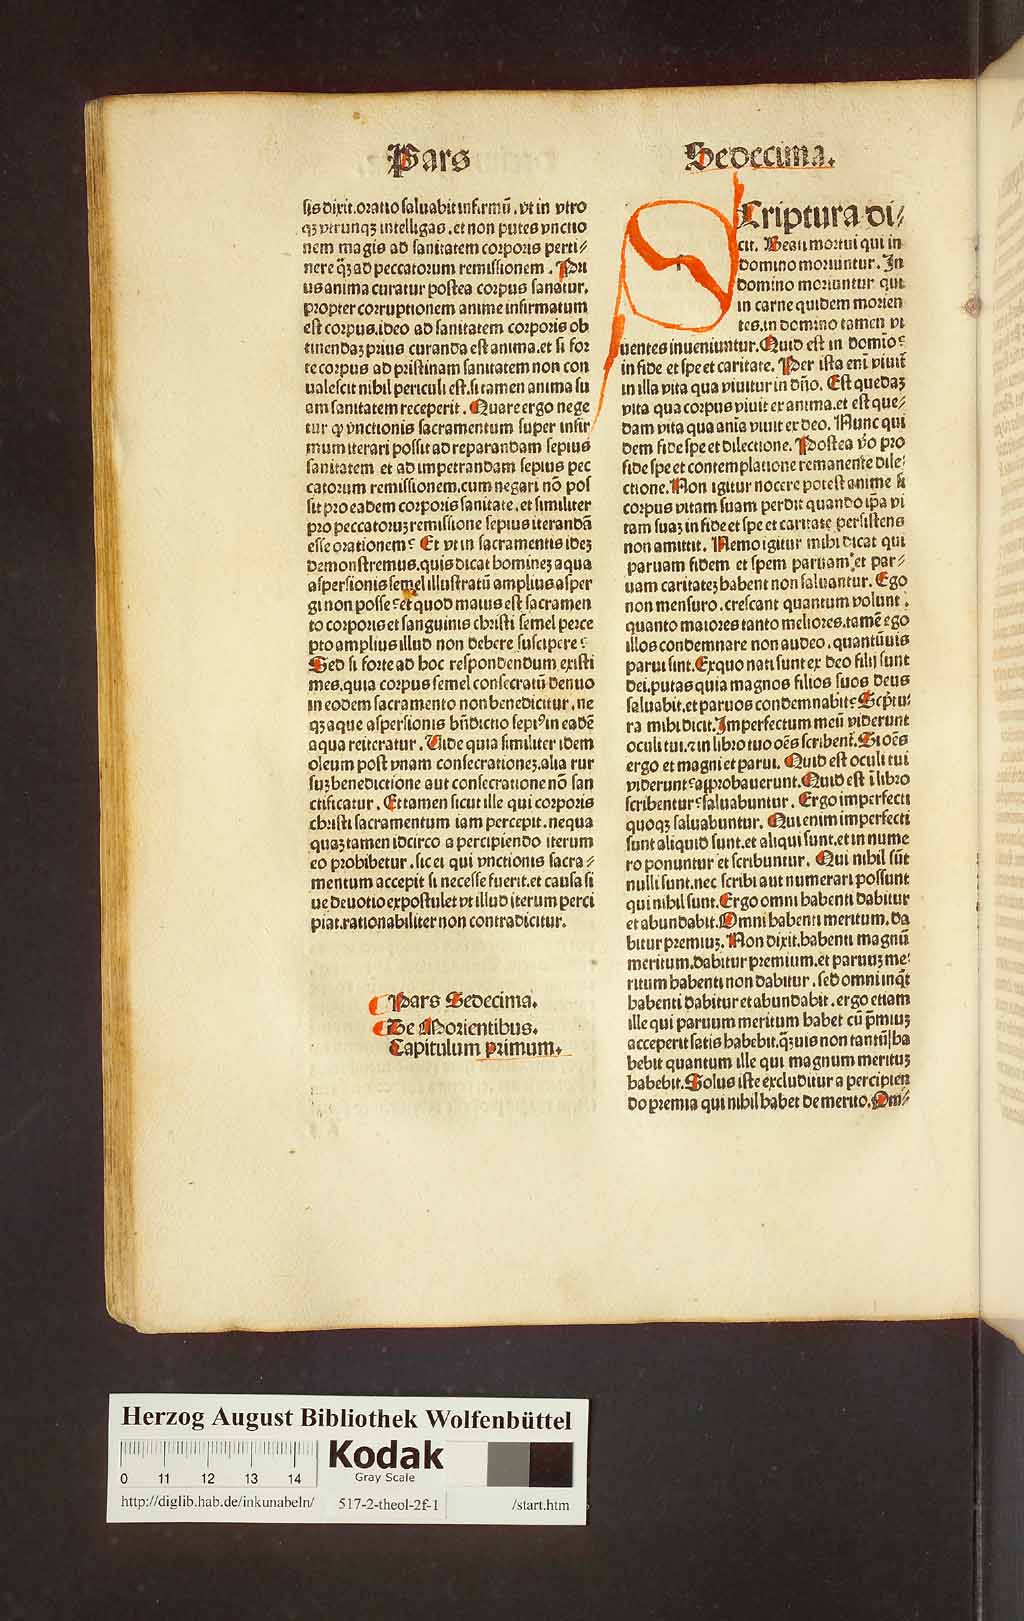 Pars
Sedecima.
sis dixit.oratio saluabit infirmū.vt in vtro
qꝫ vtrunqꝫ intelligas.et non putes vnctio
nem magis ad sanitatem corporis perti⸗
nere q̄ꝫ ad peccatorum remissionem. Pri
us anima curatur postea corpus sanatur.
propter corruptionem anime infirmatum
est corpus.ideo ad sanitatem corporis ob
tinendaꝫ prius curanda est anima.et si for
te corpus ad pristinam sanitatem non con
ualescit nihil periculi est.si tamen anima su
am sanitatem receperit. Quare ergo nege
tur ꝙ vnctionis sacramentum super infir
mum iterari possit ad reparandam sepius
sanitatem et ad impetrandam sepius pec
catorum remissionem.cum negari nō pos
sit pro eadem corporis sanitate.et similiter
pro peccatoruꝫ remissione sepius iterandā
esse orationem? Et vt in sacramentis ideꝫ
demonstremus.quis dicat homineꝫ aqua
aspersionis semel illustratū amplius asper
gi non posse?et quod maius est sacramen
to corporis et sanguinis christi semel perce
pto amplius illud non debere suscipere?
Sed si forte ad hoc respondendum existi
mes.quia corpus semel consecratū denuo
in eodem sacramento non benedicitur.ne
qꝫ aque aspersionis bn̄dictio sepiꝰ in eadē
aqua reiteratur. Vide quia similiter idem
oleum post vnam consecrationeꝫ.alia rur
suꝫ benedictione aut consecratione nō san
ctificatur. Et tamen sicut ille qui corporis
christi sacramentum iam percepit.nequa
quaꝫ tamen idcirco a percipiendo iterum
eo prohibetur.sic ei qui vnctionis sacra⸗
mentum accepit si necesse fuerit.et causa si
ue deuotio expostulet vt illud iterum perci
piat.rationabiliter non contradicitur.
Pars Sedecima.
De Morientibus.
Capitulum primum.
Scriptura di⸗
cit. Beati mortui qui in
domino moriuntur. In
domino moriuntur qui
in carne quidem morien
tes.in domino tamen vi
uentes inueniuntur.Quid est in domīo?
in fide et spe et caritate. Per ista eni viuit̄
in illa vita qua viuitur in dn̄o. Est quedaꝫ
vita qua corpus viuit ex anima.et est que⸗
dam vita qua aīa viuit ex deo. Nunc qui
dem fide spe et dilectione. Postea v̄o pro
fide spe et contemplatione remanente dile⸗
ctione.Non igitur nocere potest anime si
corpus vitam suam perdit quando ip̄a vi
tam suaꝫ in fide et spe et caritate persistens
non amittit. Nemo igitur mihi dicat qui
paruam fidem et spem paruam et par⸗
uam caritateꝫ habent non saluantur. Ego
non mensuro.crescant quantum volunt.
quanto maiores tanto meliores.tamē ego
illos condemnare non audeo.quantūuis
parui sint.Ex quo nati sunt ex deo filij sunt
dei.putas quia magnos filios suos deus
saluabit.et paruos condemnabit?Scptu⸗
ra mihi dicit.Imperfectum meū viderunt
oculi tui.⁊ in libro tuo oēs scribent̄.Si oēs
ergo et magni et parui. Quid est oculi tui
viderunt?approbauerunt.Quid est ī libro
scribentur?saluabuntur. Ergo imperfecti
quoqꝫ saluabuntur. Qui enim imperfecti
sunt aliquid sunt.et aliqui sunt.et in nume
ro ponuntur et scribuntur. Qui nihil sūt
nulli sunt.nec scribi aut numerari possunt
qui nihil sunt.Ergo omni habenti dabitur
et abundabit.Omni habenti meritum.da
bitur premiuꝫ. Non dixit.habenti magnū
meritum.dabitur premium.et paruuꝫ me⸗
ritum habenti non dabitur.sed omni inqt
habenti dabitur et abundabit.ergo etiam
ille qui paruum meritum habet cū p̄miuꝫ
acceperit satis habebit.q̄ꝫuis non tantū ha
bebit quantum ille qui magnum merituꝫ
habebit.Solus iste excluditur a percipien
do premia qui nihil habet de merito.Om⸗
Herzog August Bibliothek Wolfenbüttel
Kodak
Gray Scale
0 11 12 13 14
http://diglib.hab.de/inkunabeln/ 517-2-theol-2f-1 /start.htm